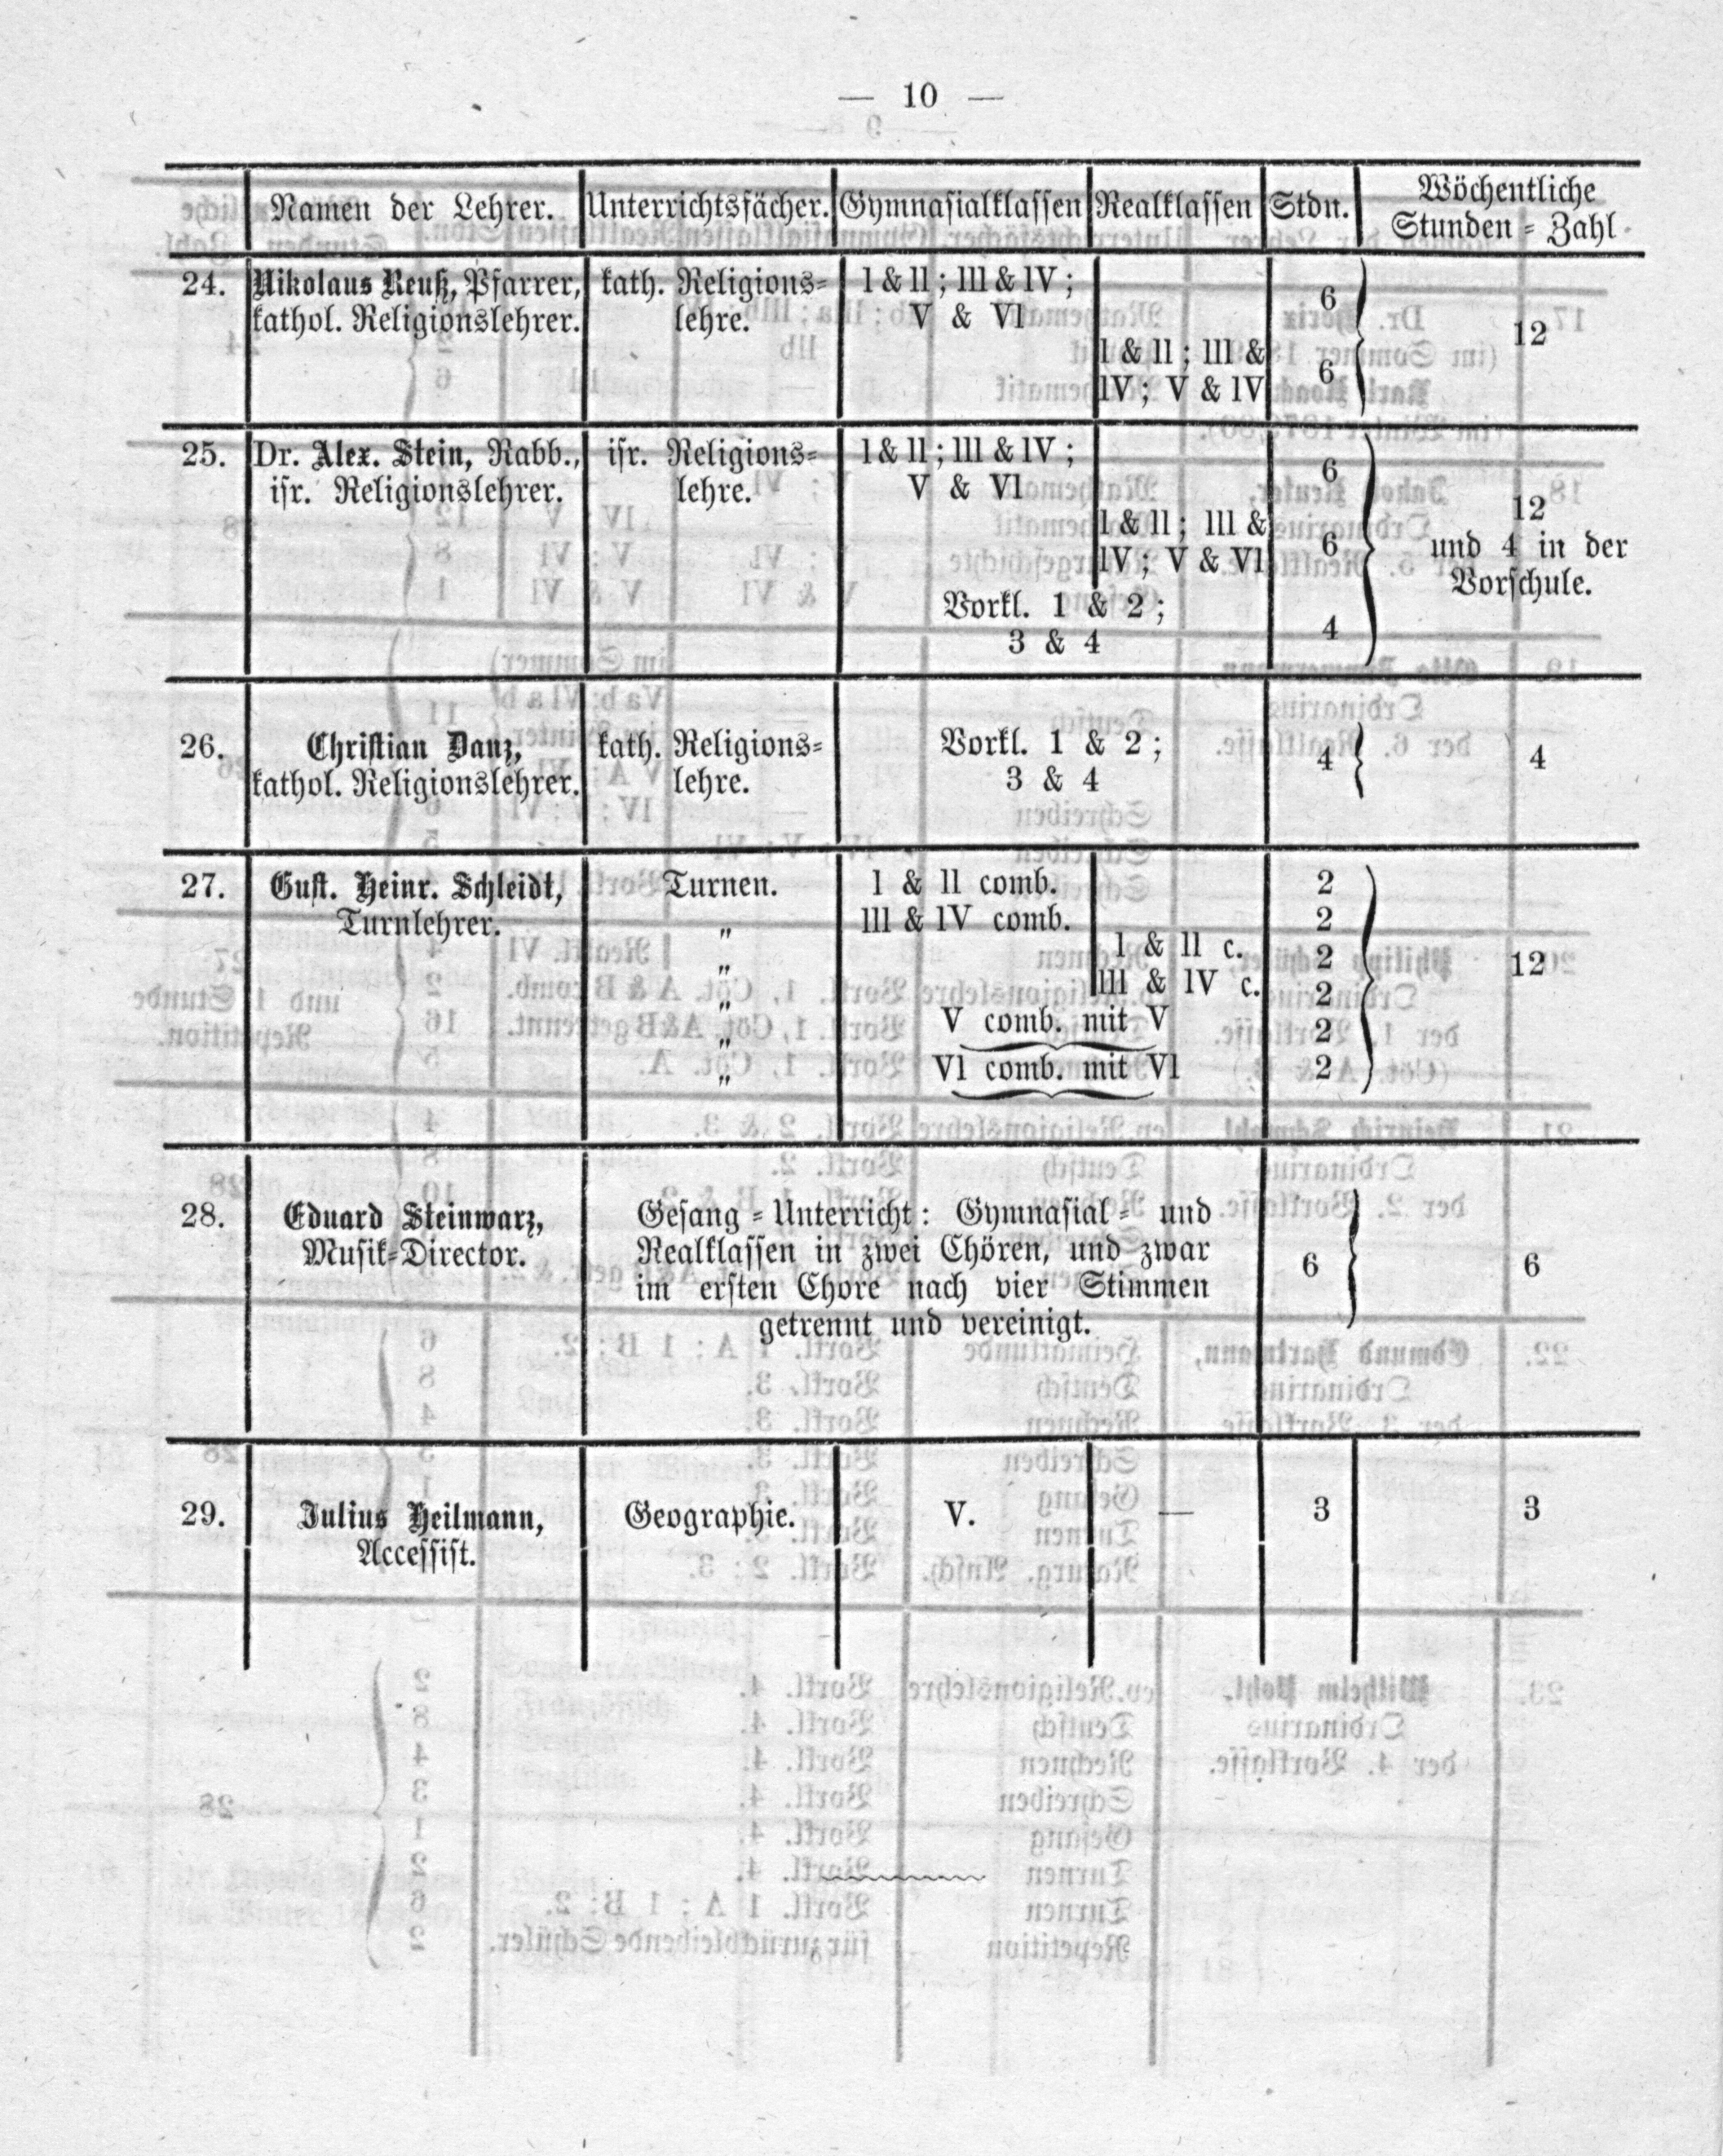 — 10 —
Namen der Lehrer. Unterrichtsfächer. Gymnasialklassen Realklassen Stdn. Wöchentliche
Stunden = Zahl
24. Nikolaus Reuß, Pfarrer, kath. Religions= I & II ; III & IV ; 6
kathol. Religionslehrer. lehre. V & VI 12
I & II ; III & 6
IV ; V & IV
25. Dr. Alex. Stein, Rabb., isr. Religions= I & II ; III & IV ; 6
isr. Religionslehrer. lehre. V & VI 12
I & II ; III & 6 und 4 in der
IV ; V & VI Vorschule.
Vorkl. 1 & 2 ; 4
3 & 4
26. Christian Danz, kath. Religions= Vorkl. 1 & 2 ; 4 4
kathol. Religionslehrer. lehre. 3 & 4
27. Gust. Heinr. Schleidt, Turnen. I & II comb. 2
Turnlehrer. „ III & IV comb. 2
„ I & II c. 2 12
„ III & IV c. 2
„ V comb. mit V 2
„ VI comb. mit VI 2
28. Eduard Steinwarz, Gesang = Unterricht: Gymnasial = und
Musik=Director. Realklassen in zwei Chören, und zwar 6 6
im ersten Chore nach vier Stimmen
getrennt und vereinigt.
29. Julius Heilmann, Geographie. V. — 3 3
Accessist.